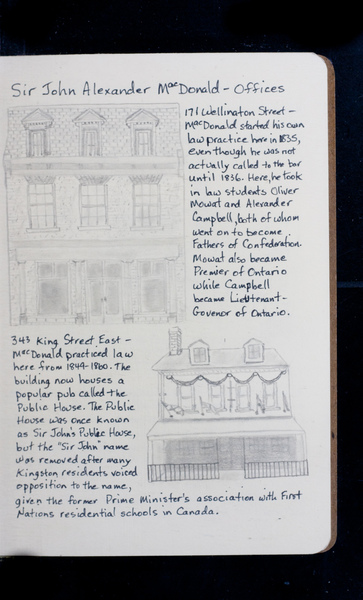 Sir John Alexander MacDonald - Offices
171 Wellington Street -
MacDonald started his own
law practice here in 1835,
even though he was not
actually called to the bar
until 1836. Here, he took
in law students Oliver
Mowat and Alexander
Campbell, both of whom
went on to become
Fathers of Confederation.
Mowat also became
Premier of Ontario
while Campbell
became Lieutenant-
Govenor of Ontario.
343 King Street East -
MacDonald practiced law
here from 1849-1860. The
building now houses a
popular pub called the
Public House. The Public
House was once known
as Sir John's Public House,
but the "Sir John" name
was removed after many
Kingston residents voiced
opposition to the name,
given the former Prime Minister's association with First
Nations residential schools in Canada.